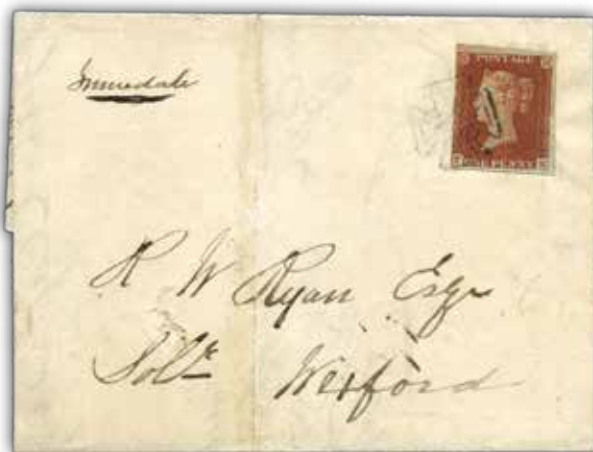 Immediate
POSTAGE
ONE PENNY
R W Ryan Esqr
Solr Wexford